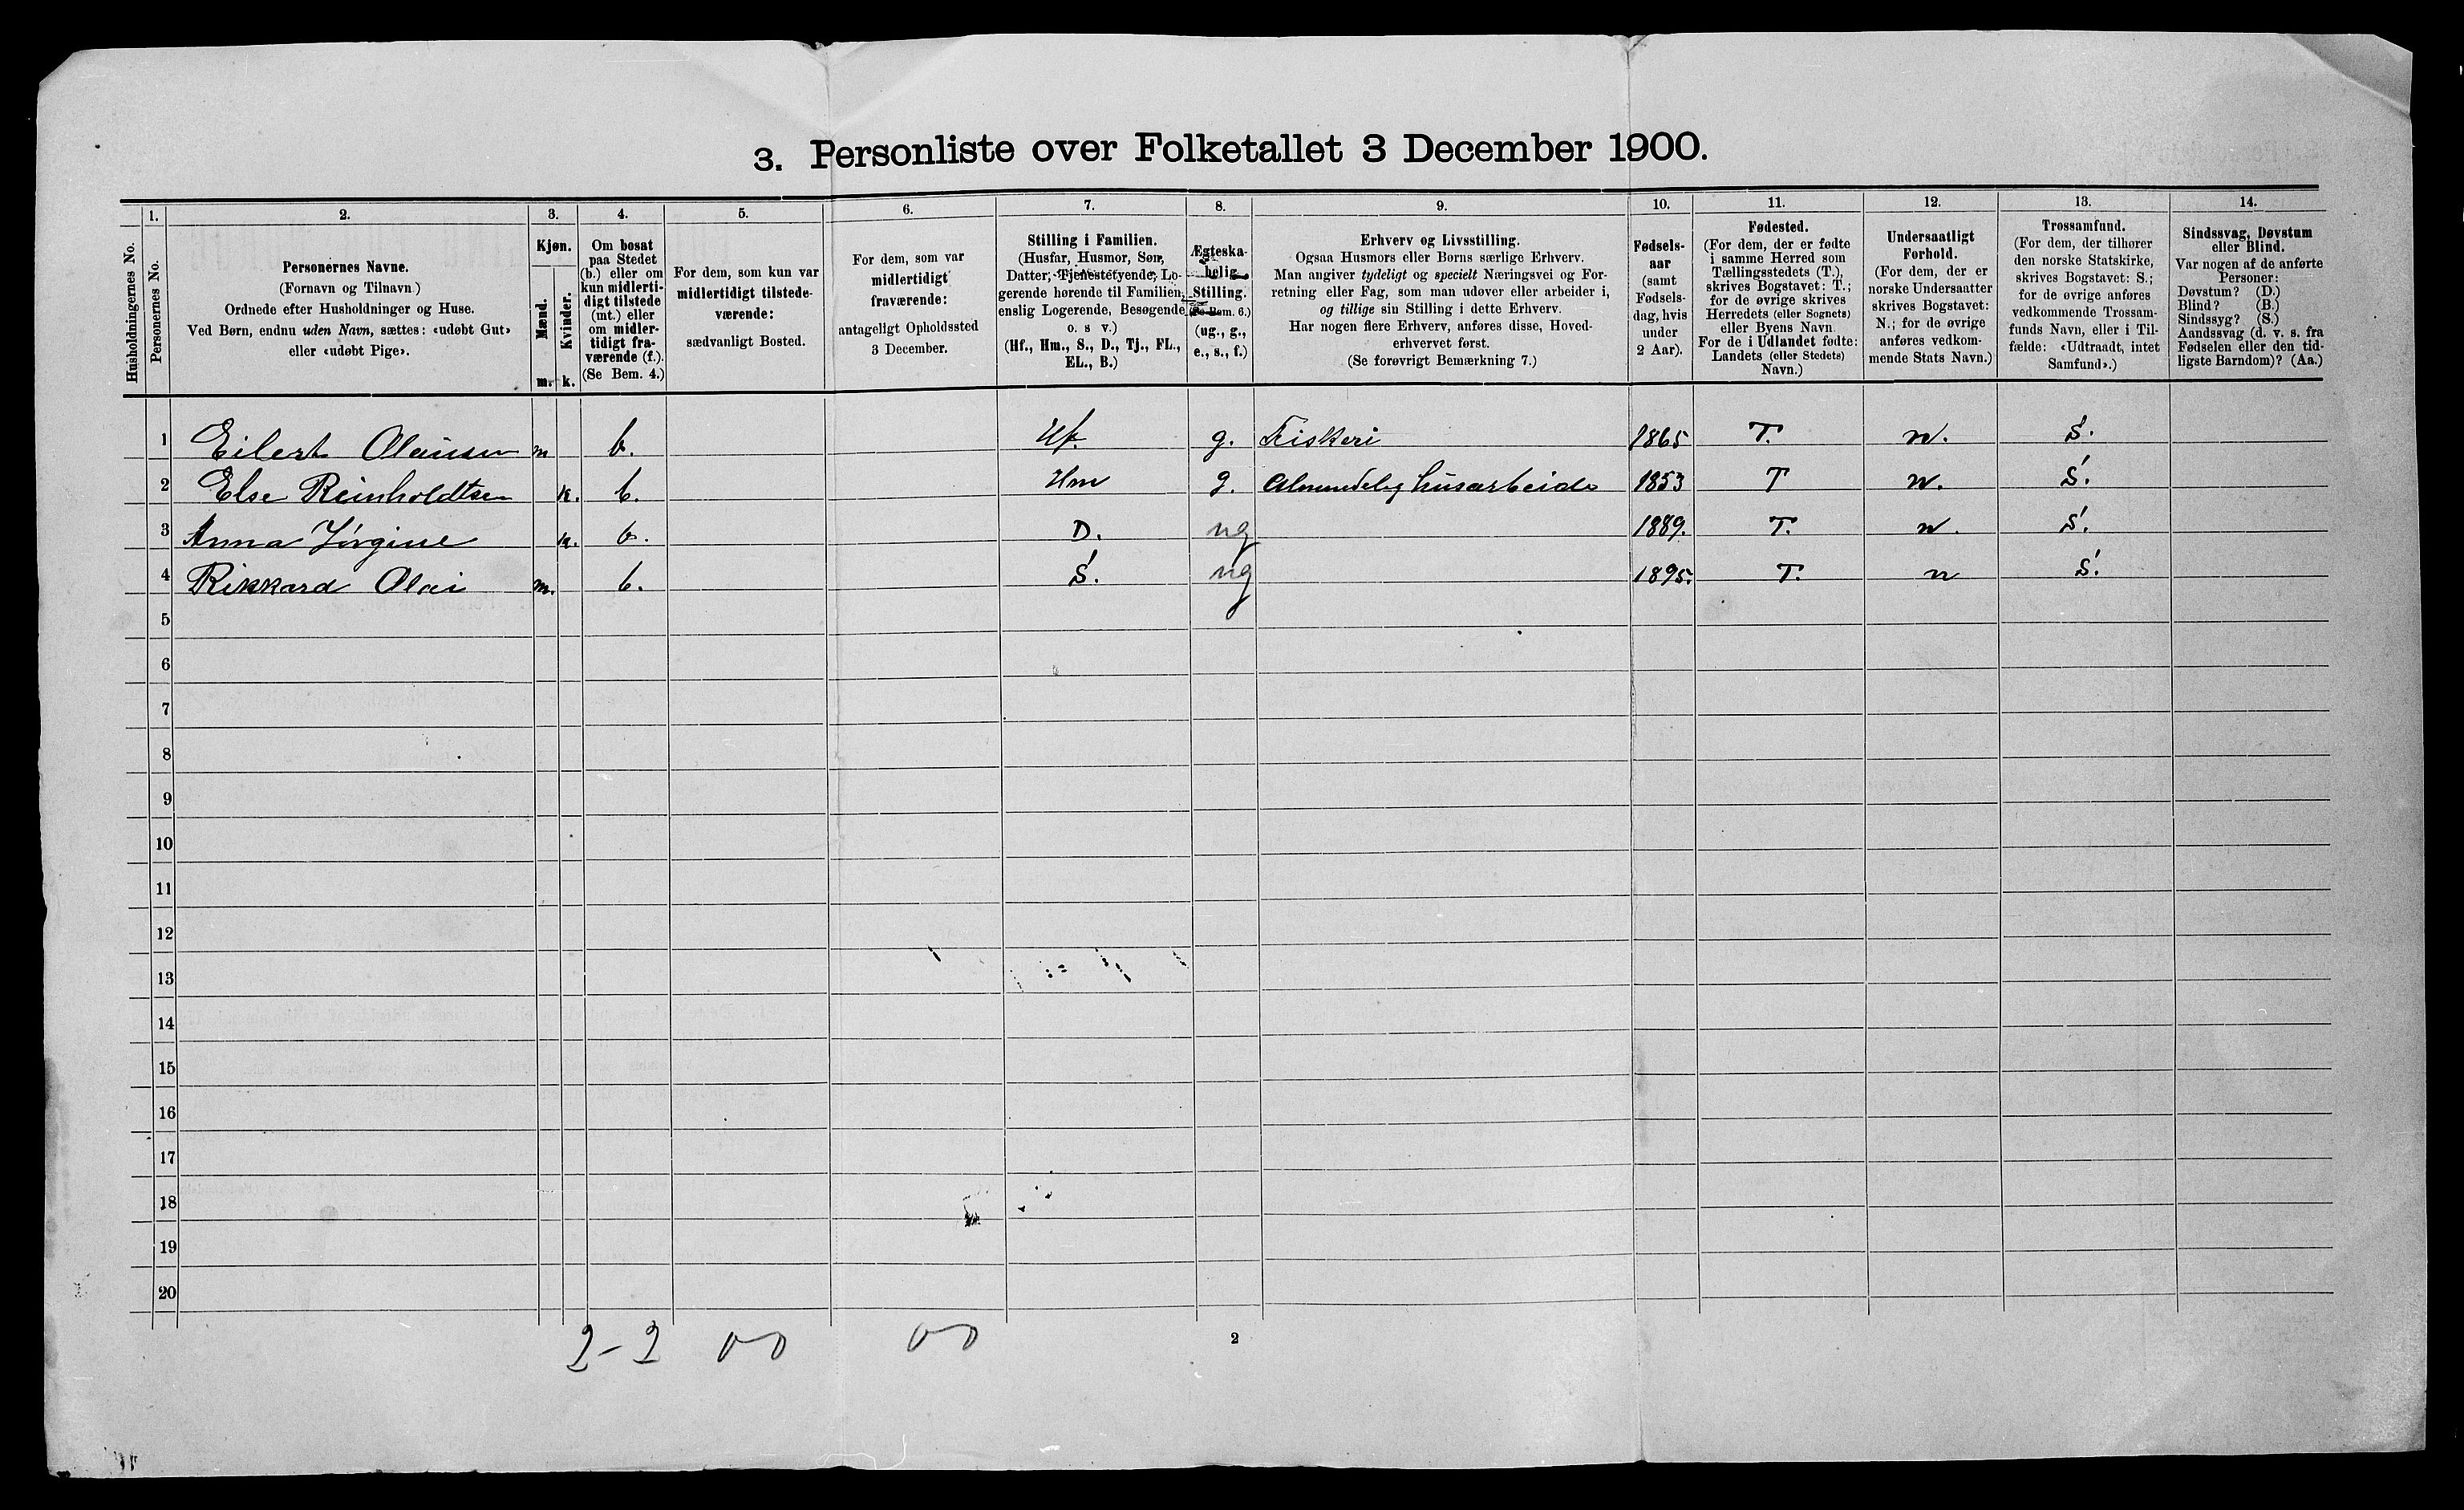 3. Personliste over Folketallet 3 December 1900.
1. 2. 3. 4. 5. 6. 7. 8. 9. 10. 11. 12. 13. 14.
Husholdningernes No.
Personernes No.
Personernes Navne.
(Fornavn og Tilnavn.)
Ordnede efter Husholdninger og Huse.
Ved Børn, endnu uden Navn, sættes: «udøbt Gut»
eller «udøbt Pige».
Kjøn.
Mænd.
Kvinder.
m. k.
Om bosat
paa Stedet
(b.) eller om
kun midlerti-
digt tilstede
(mt.) eller
om midler-
tidigt fra-
værende (f.).
(Se Bem. 4.)
For dem, som kun var
midlertidigt tilstede-
værende:
sædvanligt Bosted.
For dem, som var
midlertidigt
fraværende:
antageligt Opholdssted
3 December.
Stilling i Familien.
(Husfar, Husmor, Søn,
Datter, Tjenestetyende, Lo-
gerende hørende til Familien,
enslig Logerende, Besøgende
o. s v.)
(Hf., Hm., S., D., Tj., FL.,
EL., B.)
Ægteska-
belig
Stilling.
(Se Bem. 6.)
(ug., g.,
e., s., f.)
Erhverv og Livsstilling.
Ogsaa Husmors eller Børns særlige Erhverv.
Man angiver tydeligt og specielt Næringsvei og For-
retning eller Fag, som man udøver eller arbeider i,
og tillige sin Stilling i dette Erhverv.
Har nogen flere Erhverv, anføres disse, Hoved-
erhvervet først.
(Se forøvrigt Bemærkning 7.)
Fødsels-
aar
(samt
Fødsels-
dag, hvis
under
2 Aar).
Fødested.
(For dem, der er fødte
i samme Herred som
Tællingsstedets (T.),
skrives Bogstavet: T.;
for de øvrige skrives
Herredets (eller Sognets)
eller Byens Navn.
For de i Udlandet fødte:
Landets (eller Stedets)
Navn.)
Undersaatligt
Forhold.
(For dem, der er
norske Undersaatter
skrives Bogstavet:
N.; for de øvrige
anføres vedkom-
mende Stats Navn.)
Trossamfund.
(For dem, der tilhører
den norske Statskirke,
skrives Bogstavet: S.;
for de øvrige anføres
vedkommende Trossam-
funds Navn, eller i Til-
fælde: «Udtraadt, intet
Samfund».)
Sindssvag, Døvstum
eller Blind.
Var nogen af de anførte
Personer:
Døvstum? (D.)
Blind? (B.)
Sindssyg? (S.)
Aandssvag (d. v. s. fra
Fødselen eller den tid-
ligste Barndom)? (Aa.)
1 Eilert Olausen m b. Hf. g. Fiskeri 1865 T. n. S.
2 Else Reinholdtsen k. b. Hm g. Almindelig husarbeide 1853 T n. S.
3 Anna Jørgine k. b. D. ug 1889. T. n. S.
4 Rikkard Olai m. b. S. ug 1895. T. n S.
5
6
7
8
9
10
11
12
13
14
15
16
17
18
19
20
2-2 00 00 2